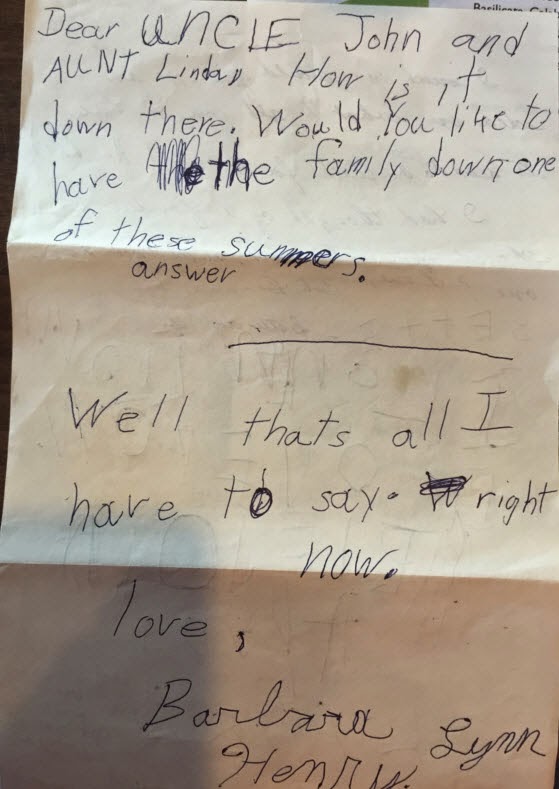 Dear UNCLE John and
AUNT Linda, How is it
down there. Would You like to
have the family down one
of these summers.
answer
Well thats all I
have to say. right
now.
love,
Barbara Lynn
Henry.